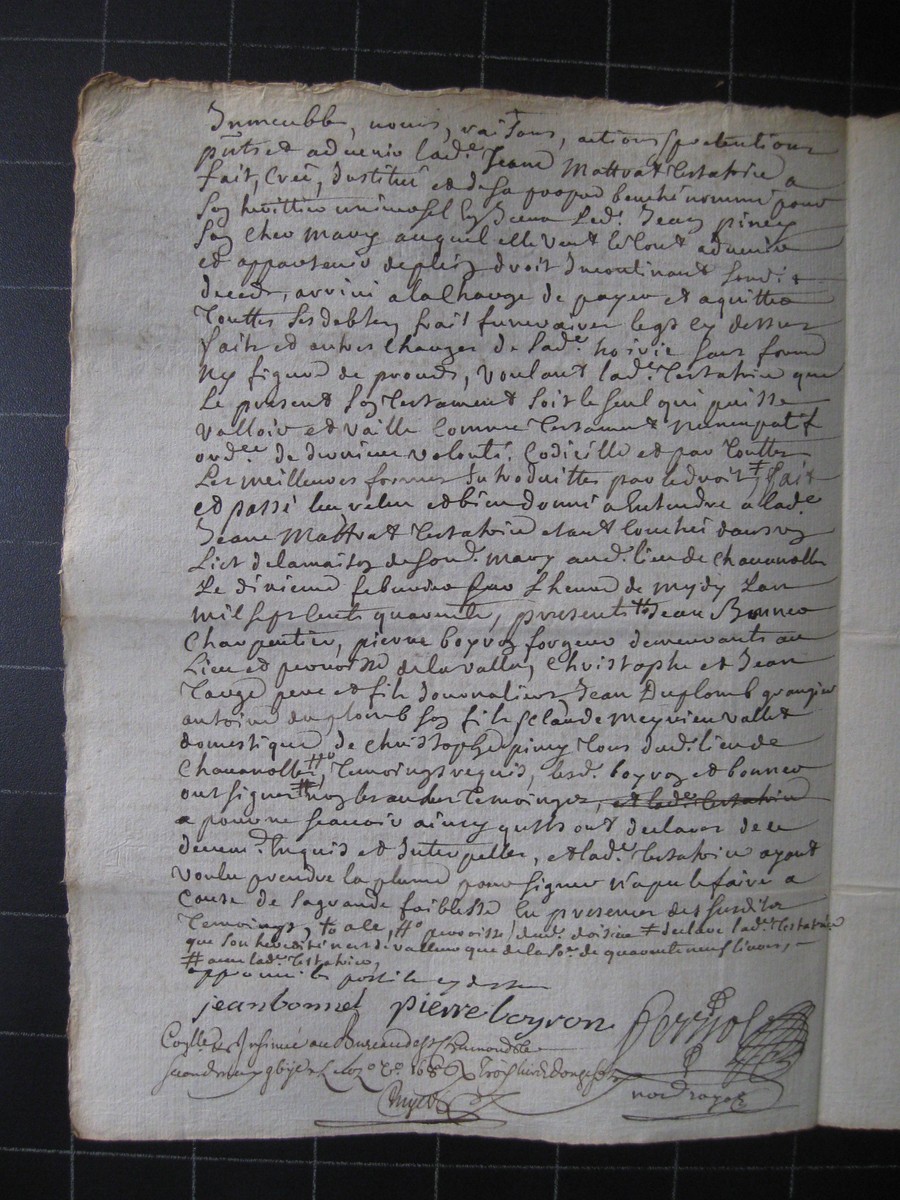 Immeubles, noms, raisons, actions & pretentions
pñts et advenir lad.e Jeane Mattrat testatrice a
fait, creé, institué et de sa propre bouche nommé pour
son herittier universel led. Jean piney
son cher mary auquel elle veut le tout advenir
et appartenir de plein droit Incontinant sondit
deceds, arrivé a la charge de payer et aquitter
touttes ses debtes, frais funeraires legs cy dessus
faits et autres charges de lad.e hoirie sans forme
ny figure de procés, voulant lad.e testatrice que
le present son testament soit le seul qui puisse
valloir et vaille comme testament nuncupatif
ord.re de derniere volonté, codicille et par touttes
les meilleures formes Introduittes par le droit # fait
et passé leu releu et bien donné a Entendre a lad.e
Jeane Mattrat testatrice etant couchée dans son
lict de la maison de sond. mary aud. lieu de chavanolle
le dixieme febvrier sur l'heure de mydy l'an
mil sept cents quarente, presents Jean Bonnet
charpentier, pierre boyron forgeur demeurants au
lieu et parroisse de la valla, christophe et Jean
pere et fils Journaliers Jean Duplomb grangier
antoine duplomb son fils & claude meyrieu vallet
domestique de christophe piney tous dud. lieu de
chavanolle #o temoings requis, lesd. boyron et bonnet
ont signez # non les autres temoings, et lad.e testatrice
a pour ne scavoir ainsy qu'ils ont declarer de ce
deuem.t Enquis et Interpellez, et lad.e testatrice ayant
voulu prendre la plume pour signer n'a pu le faire a
cause de sa grande faiblesse En presence des susdits
temoings, #o parroisse # declare lad.e testatrice
que son heredité n'est de valleur que de la so.e de quarante neuf livres,
# avec lad.e testatrice,
approuvé les postilles cy dessus
jean bonnet pierre boyron
Con.lle & Insinué au Bureau de St Chamond le
not. royal